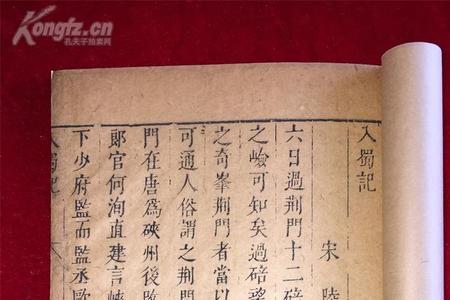 Kongfz.cn
孔夫子拍卖网
入蜀記
宋 陸
六日過荊門十二碚
之嶮可知矣過碚望
之奇峯荊門者當以
可通人俗謂之荊門
門在唐爲硤州後
郎官何洵直建言峽
下少府監而監丞歐
入蜀記